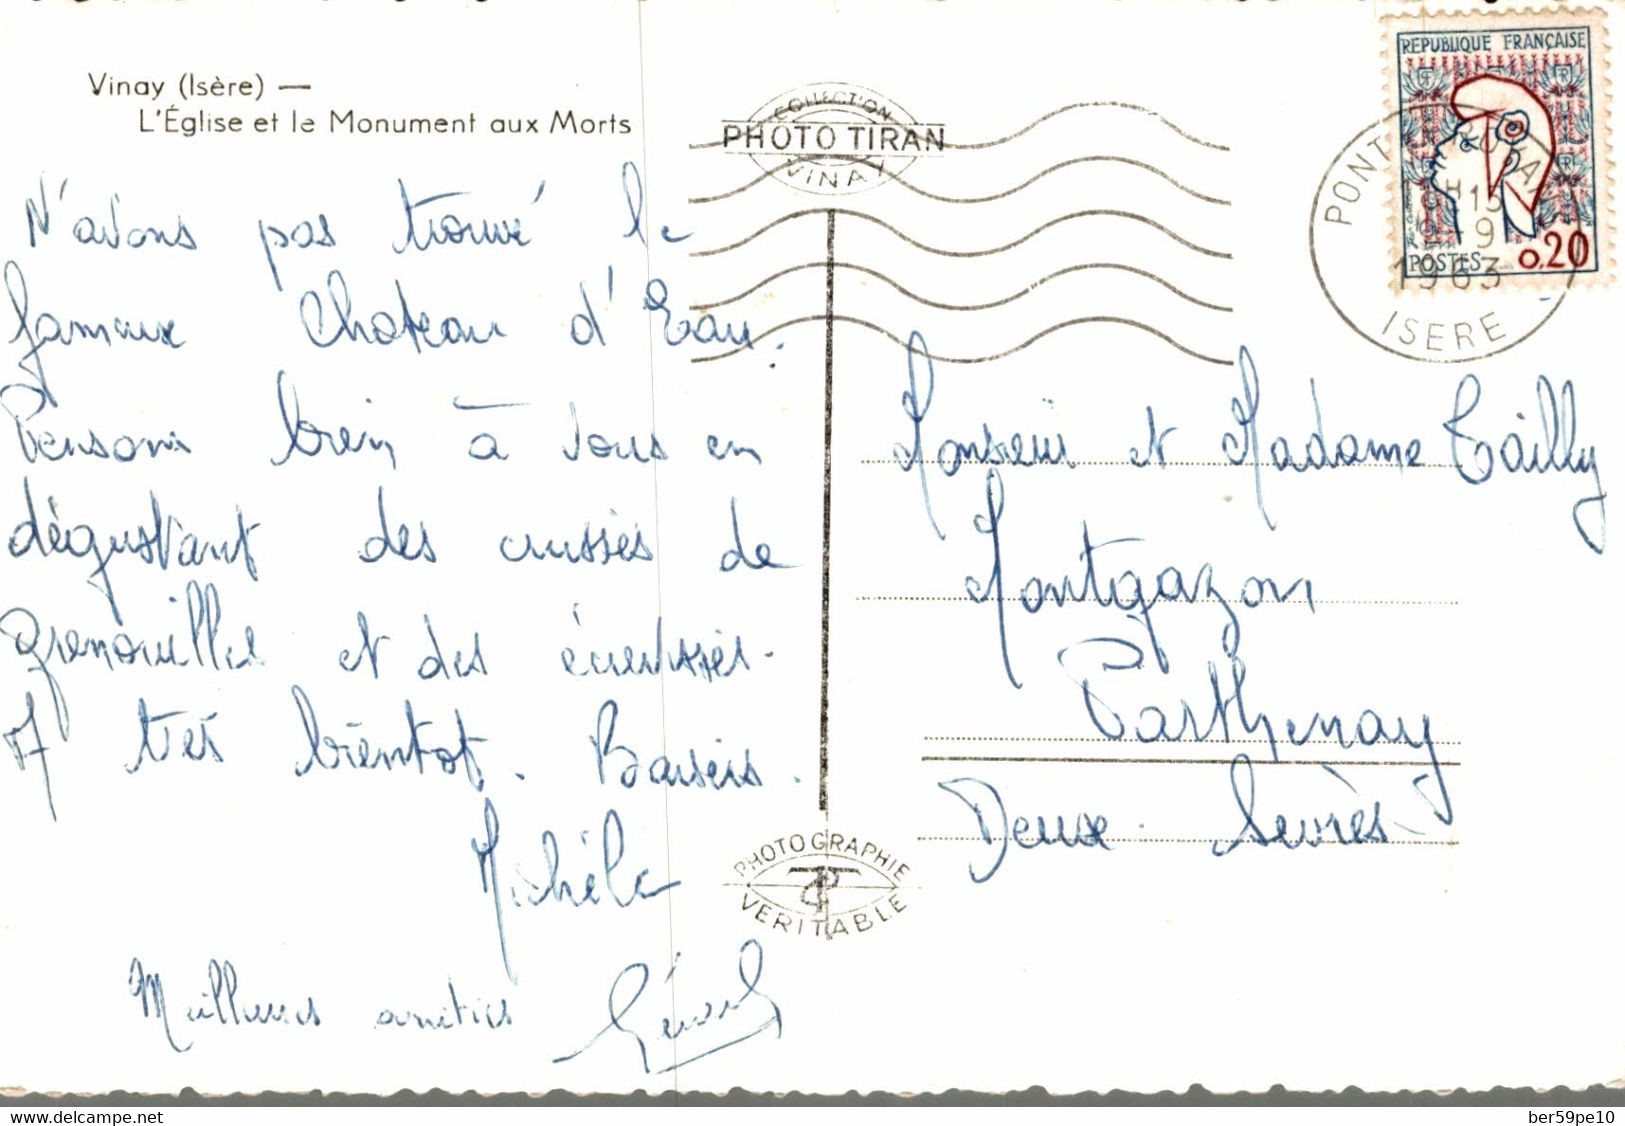 Vinay (Isère) —
L'Église et le Monument aux Morts
COLLECTION
PHOTO TIRAN
VINAY
REPUBLIQUE FRANÇAISE
POSTES 0,20
PONT
9
1963
ISERE
N'avons pas trouvé le
fameux Chateau d'Eau.
Pensons bien à vous en
dégustant des cuisses de
grenouilles et des écrevisses.
A très bientot. Baisers.
Michèle
Meilleures amitiés Gérard
Monsieur et Madame Tailly
Montgazon
Parthenay
Deux. Sèvres
PHOTOGRAPHIE
VERITABLE
www.delcampe.net
ber59pe10